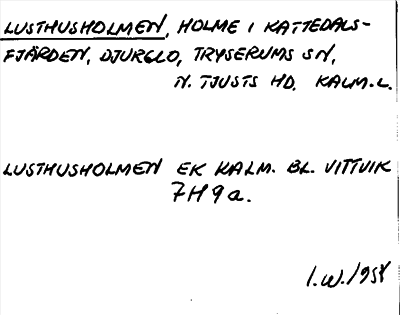 LUSTHUSHOLMEN, HOLME I KATTEDALS-
FJÄRDEN, DJURGLO, TRYSERUMS SN,
N. TJUSTS HD. KALM.L.
LUSTHUSHOLMEN EK KALM. BL. VITTVIK
7H9a.
I.W. 1958